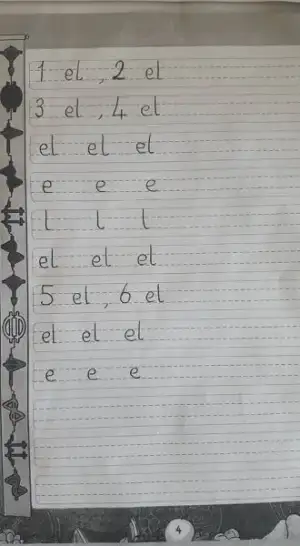 1 el , 2 el
3 el , 4 el
el el el
e e e
l l l
el el el
5 el , 6 el
el el el
e e e
4